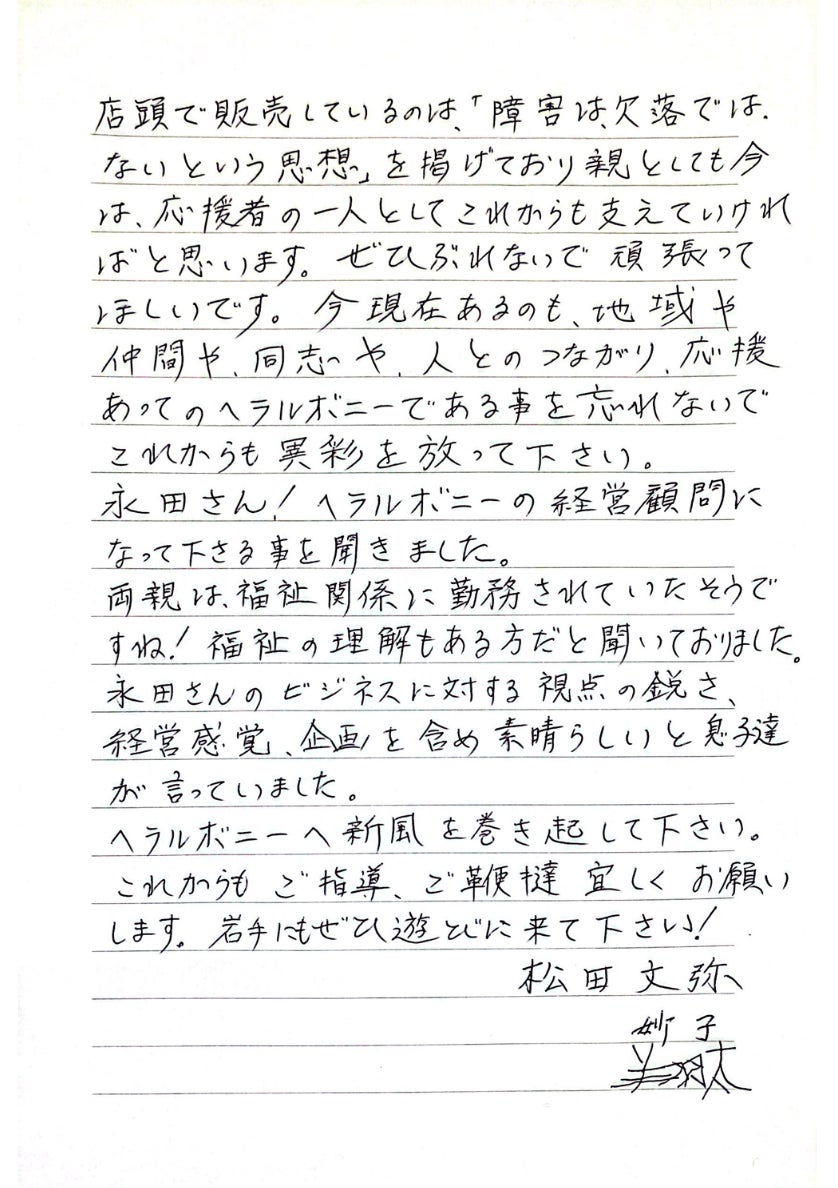 店頭で販売しているのは、「障害は、欠落では
ないという思想」を掲げており親としても今
は、応援者の一人としてこれからも支えていけれ
ばと思います。ぜひぶれないで頑張って
ほしいです。今現在あるのも、地域や
仲間や、同志や、人とのつながり、応援
あってのヘラルボニーである事を忘れないで
これからも異彩を放って下さい。
永田さん！ヘラルボニーの経営顧問に
なって下さる事を聞きました。
両親は、福祉関係に勤務されていたそうで
すね！福祉の理解もある方だと聞いておりました。
永田さんのビジネスに対する視点の鋭さ、
経営感覚、企画を含め素晴らしいと息子達
が言っていました。
ヘラルボニーへ新風を巻き起して下さい。
これからもご指導、ご鞭撻宜しくお願い
します。岩手にもぜひ遊とびに来て下さい！
松田文弥
妙子